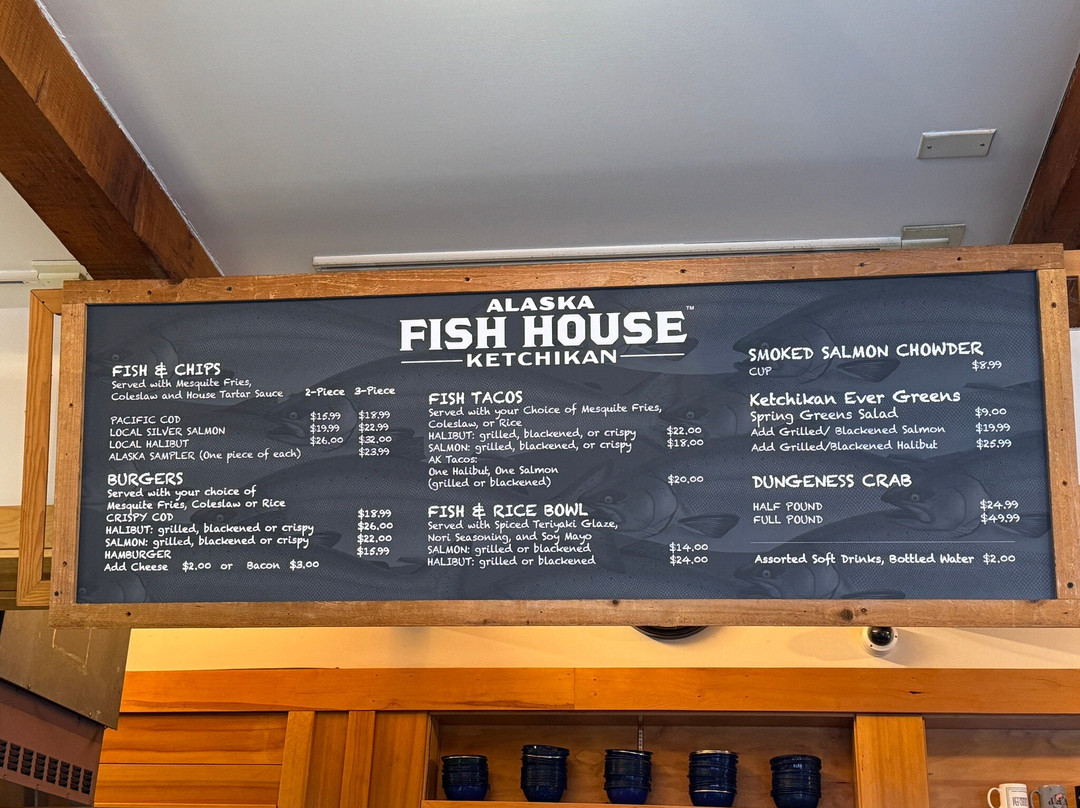 ALASKA
FISH HOUSE™
KETCHIKAN
FISH & CHIPS
Served with Mesquite Fries,
Coleslaw and House Tartar Sauce 2-Piece 3-Piece
PACIFIC COD $15.99 $18.99
LOCAL SILVER SALMON $19.99 $22.99
LOCAL HALIBUT $26.00 $32.00
ALASKA SAMPLER (One piece of each) $23.99
BURGERS
Served with your choice of
Mesquite Fries, Coleslaw or Rice
CRISPY COD $18.99
HALIBUT: grilled, blackened or crispy $26.00
SALMON: grilled, blackened or crispy $22.00
HAMBURGER $15.99
Add Cheese $2.00 or Bacon $3.00
FISH TACOS
Served with your Choice of Mesquite Fries,
Coleslaw, or Rice
HALIBUT: grilled, blackened, or crispy $22.00
SALMON: grilled, blackened, or crispy $18.00
AK Tacos:
One Halibut, One Salmon
(grilled or blackened) $20.00
FISH & RICE BOWL
Served with Spiced Teriyaki Glaze,
Nori Seasoning, and Soy Mayo
SALMON: grilled or blackened $14.00
HALIBUT: grilled or blackened $24.00
SMOKED SALMON CHOWDER
CUP $8.99
Ketchikan Ever Greens
Spring Greens Salad $9.00
Add Grilled/ Blackened Salmon $19.99
Add Grilled/Blackened Halibut $25.99
DUNGENESS CRAB
HALF POUND $24.99
FULL POUND $49.99
Assorted Soft Drinks, Bottled Water $2.00